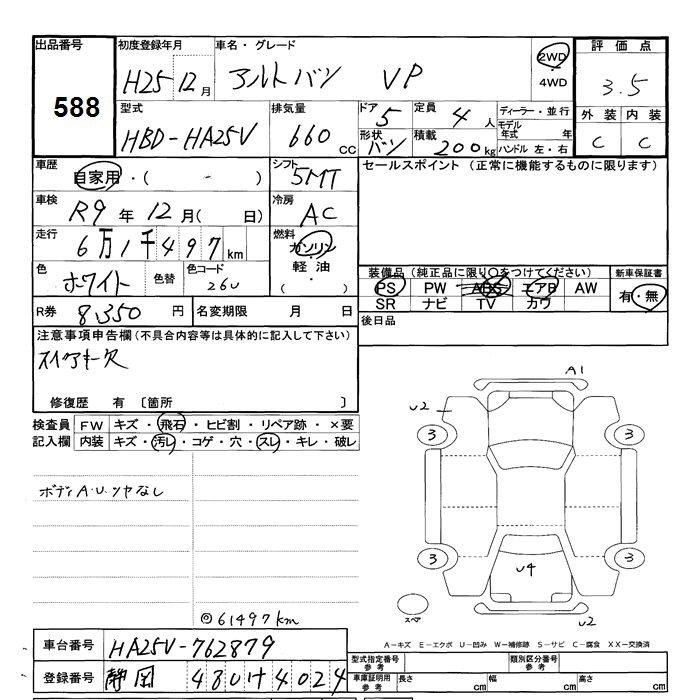 出品番号 初度登録年月 車名・グレード 評価点
588 H25 12月 アルトバン VP 2WD 4WD 3.5
型式 排気量 ドア 定員 ディーラー・並行 外装 内装
HBD-HA25V 660cc 5 4人 モデル年式 年 C C
形状 バン 積載 200kg ハンドル 左・右
車歴 自家用・( - ) シフト 5MT セールスポイント (正常に機能するものに限ります)
車検 R9年12月( 日) 冷房 AC
走行 6万1千497km 燃料 ガソリン・軽油・( )
色 ホワイト 色替 色コード 26U
装備品 (純正品に限り○をつけてください) 新車保証書
PS PW ABS エアB AW 有・無
SR ナビ TV カワ
R券 8,350円 名変期限 月 日 後日品
注意事項申告欄 (不具合内容等は具体的に記入して下さい)
スペアキー欠
修復歴 有 〔箇所 〕
検査員記入欄 FW キズ・飛石・ヒビ割・リペア跡・×要
内装 キズ・汚レ・コゲ・穴・スレ・キレ・破レ
ボディA.U.ツヤなし
◎61497km
A1
U2
3 3
3 3
U4
スペア
U2
A-キズ E-エクボ U-凹み W-補修跡 S-サビ C-腐食 XX-交換済
車台番号 HA25V-762879
型式指定番号 参考 類別区分番号 参考
登録番号 静岡 480け4024
車庫証明用 参考 長さ cm 幅 cm 高さ cm